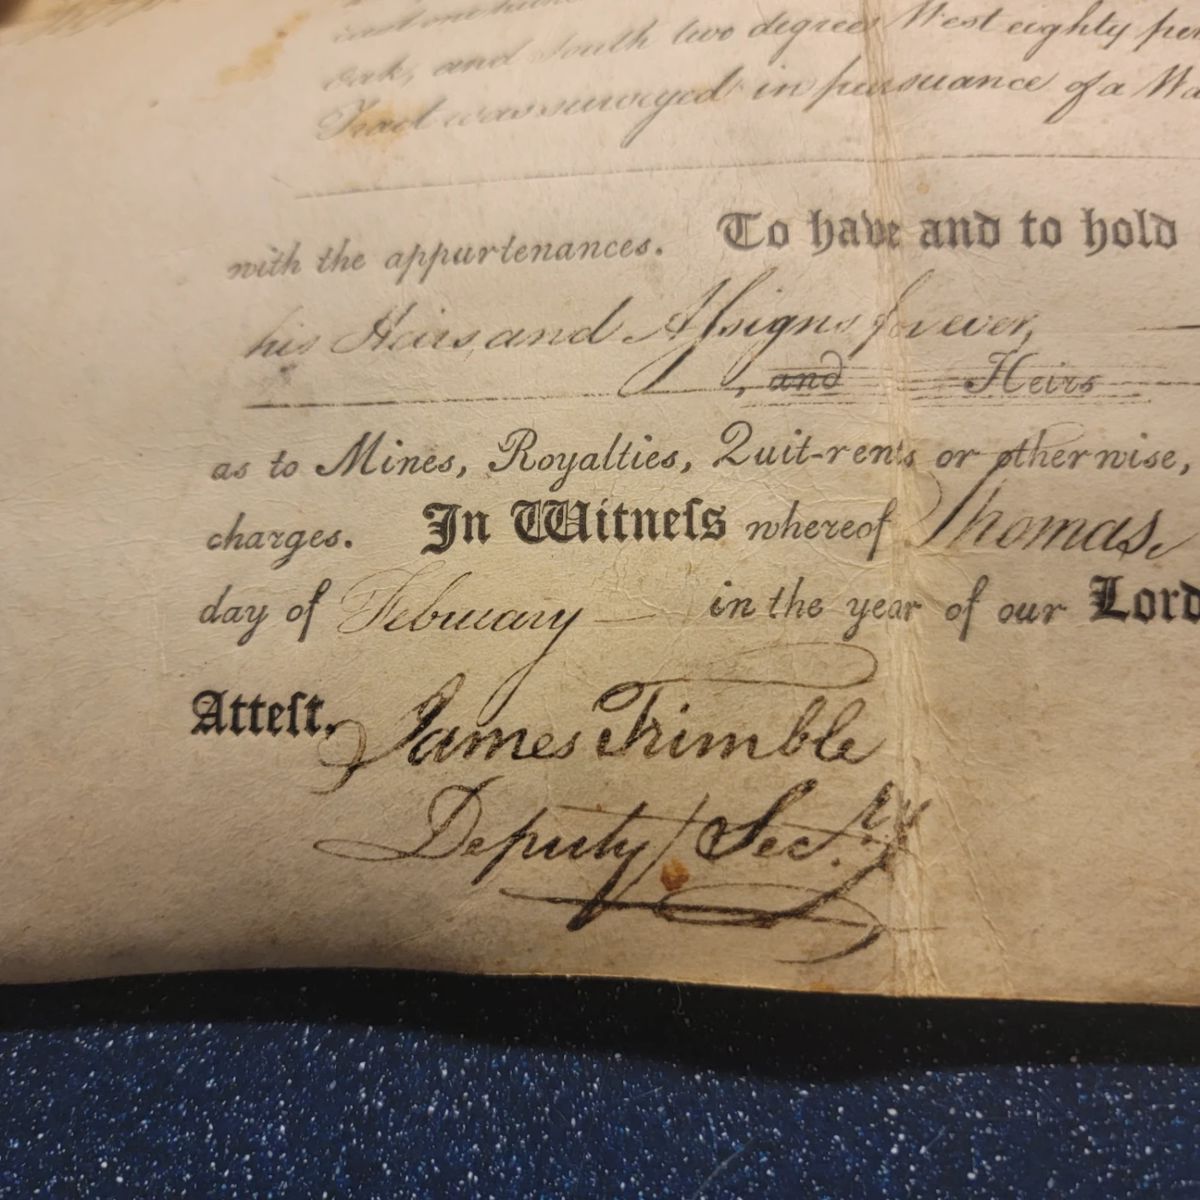 oak, and South two degrees West eighty per
Tract was surveyed in pursuance of a Wa
with the appurtenances. To have and to hold
his Heirs and Aſsigns forever,
, and Heirs
as to Mines, Royalties, Quit-rents or otherwise,
charges. In Witneſs whereof Thomas
day of February in the year of our Lord
Atteſt. James Trimble
Deputy Secry